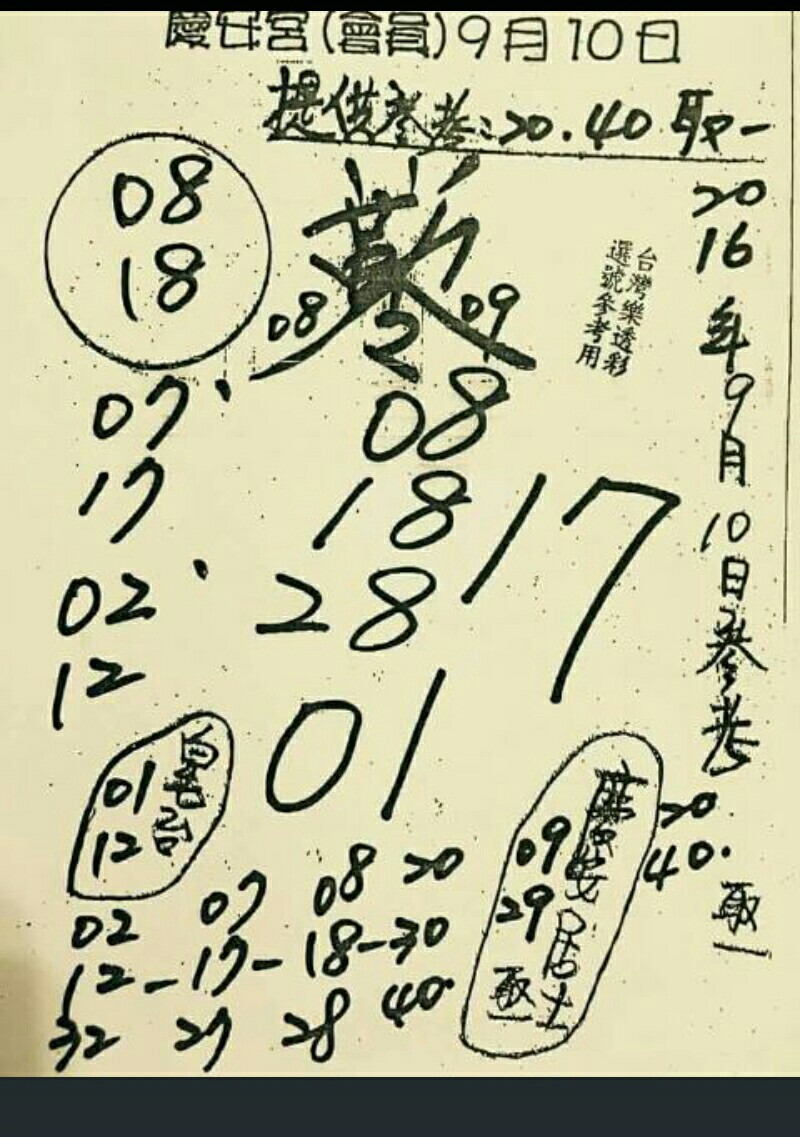 慶安宮(會員)9月10日
提供參考:20.40取一
08
18
08 2 09
台灣樂透彩
選號參考用
2016年9月10日參考
20
40.
取一
07
17
02
12
08
18
28
17
01
01
12
09
29
慶安居士
取一
02 07 08 20
12-17-18-30
32 27 28 40.